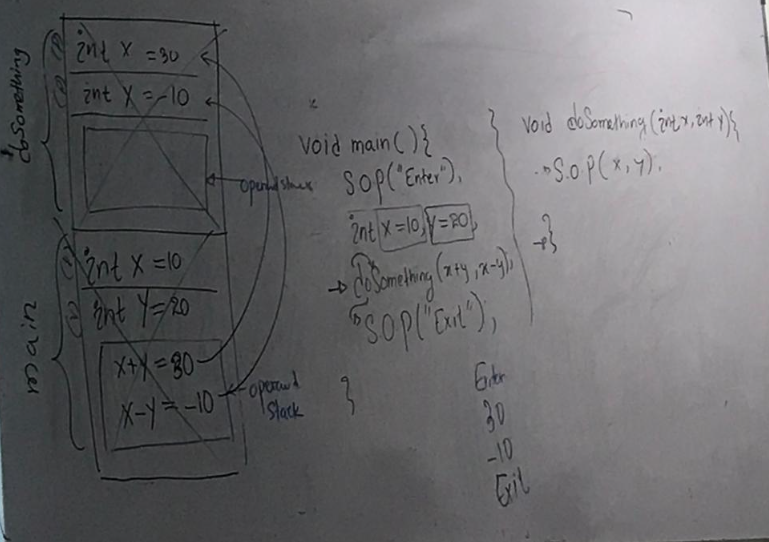 doSomething
① int X = 30
② int X = -10
operand stack
main
① int X = 10
② int Y = 20
X+Y = 30
X-Y = -10
operand
stack
void main(){
S.O.P("Enter");
int X=10, Y=20;
→ doSomething(x+y, x-y);
S.O.P("Exit");
}
void doSomething(int x, int y){
S.O.P(x, y);
}
Enter
30
-10
Exit